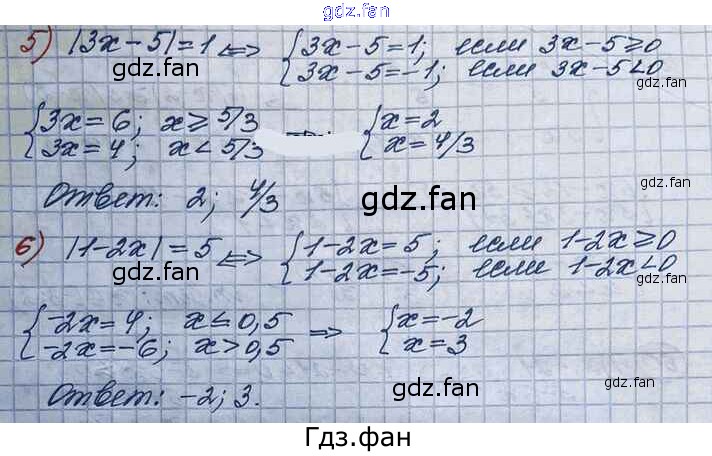 gdz.fan
5) |3x-5|=1 <=> { 3x-5=1; если 3x-5≥0
3x-5=-1; если 3x-5<0
gdz.fan gdz.fan
{ 3x=6; x≥5/3 { x=2
3x=4; x<5/3 x=4/3
Ответ: 2; 4/3
gdz.fan gdz.fan
6) |1-2x|=5 <=> { 1-2x=5; если 1-2x≥0
1-2x=-5; если 1-2x<0
gdz.fan gdz.fan
{ -2x=4; x≤0,5 => { x=-2
-2x=-6; x>0,5 x=3
gdz.fan
Ответ: -2; 3.
gdz.fan gdz.fan
Гдз.фан